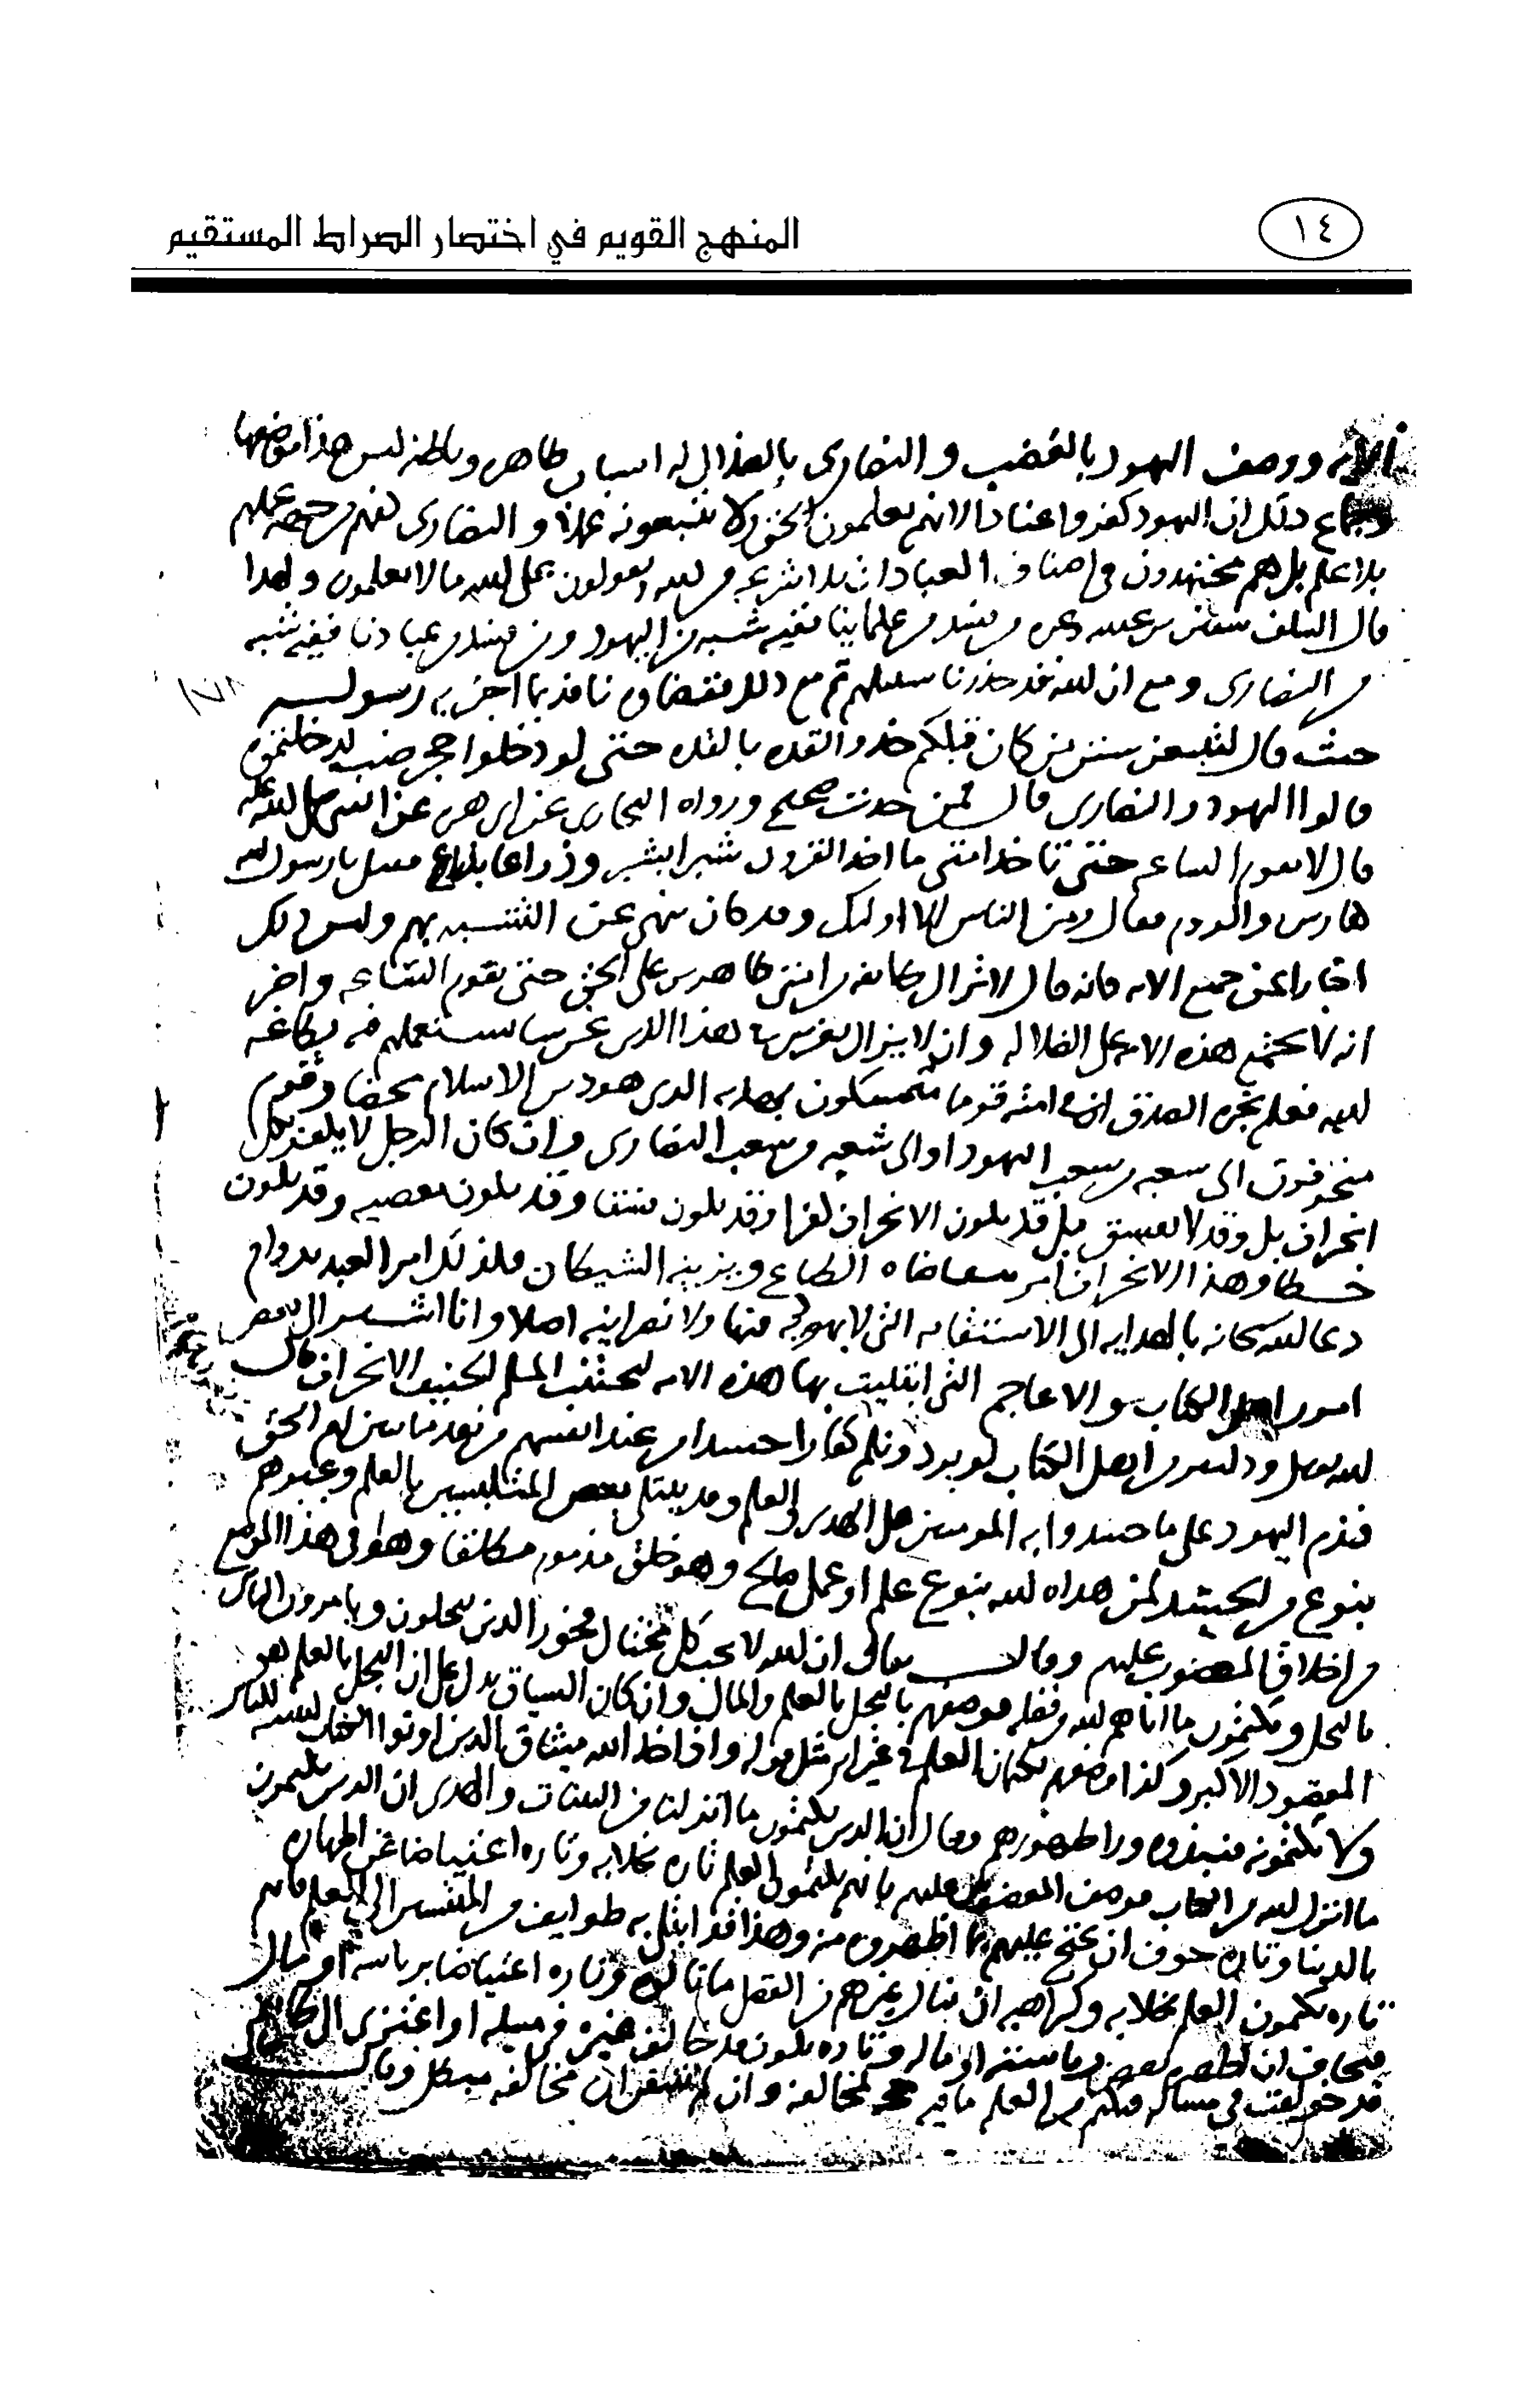 ١٤
المنهج القويم في اختصار الصراط المستقيم
الآية ووصف اليهود بالغضب والنصارى بالضلال له اسباب ظاهره وباطنه ليس هذا موضعها
وجماع ذلك ان اليهود كفروا عنادا لانهم يعلمون الحق ولا يتبعونه عملا والنصارى كفرهم من جهة عملهم
بلا علم بل هم مجتهدون في اصناف العبادات بلا شريعه من الله ويقولون على الله ما لا يعلمون ولهذا
قال السلف سفين بن عيينه وغيره من فسد من علماينا ففيه شبه من اليهود ومن فسد من عبادنا ففيه شبه
من النصارى ومع ان الله قد حذرنا سبيلهم ثم مع ذلك فقضاوه نافذ بما اخبر به رسوله
حيث قال لتتبعن سنن من كان قبلكم حذو القذه بالقذه حتى لو دخلوا جحر ضب لدخلتموه
قالوا اليهود والنصارى قال فمن حديث صحيح ورواه البخاري عن ابي هريره عن النبي صلى الله عليه
قال لا تقوم الساعه حتى تاخذ امتي ما اخذ القرون شبرا بشبر وذراعا بذراع فقيل يا رسول الله
فارس والروم فقال ومن الناس الا اوليك وقد كان ينهى عن التشبه بهم وليس ذلك
اخبارا عن جميع الامه فانه قال لا تزال طايفه من امتي ظاهرين على الحق حتى تقوم الساعه واخبر
انه لا تجتمع هذه الامه على الضلاله وان لا يزال يغرس في هذا الدين غرسا يستعملهم فيه بطاعته
لله فعلم بخبره الصدق ان في امته قوما متمسكون بهديه الذي هو دين الاسلام محضا وقوم
منحرفون الى شعبه من شعب اليهود او الى شعبه من شعب النصارى وان كان الرجل لا يكفر بكل
انحراف بل وقد لا يفسق بل قد يكون الانحراف كفرا وقد يكون فسقا وقد يكون معصيه وقد يكون
خطا وهذا الانحراف امر تتقاضاه الطباع ويزينه الشيطان فلذلك امر العبد بدوام
دعا الله سبحانه بالهدايه الى الاستقامه التي لا يهوديه فيها ولا نصرانيه اصلا وانا اشير الى بعض
امور اهل الكتاب والاعاجم التي ابتليت بها هذه الامه ليجتنب المسلم الحنيف الانحراف قال
الله تعالى ود كثير من اهل الكتاب لو يردونكم كفارا حسدا من عند انفسهم من بعد ما تبين لهم الحق
فذم اليهود على ما حسدوا به المومنين على الهدى والعلم وقد يبتلى بعض المتلبسين بالعلم وغيرهم
بنوع من الحسد لمن هداه الله بنوع علم او عمل صالح وهو خلق مذموم مطلقا وهو في هذا الموضع
من اخلاق المغضوب عليهم وقال تعالى ان الله لا يحب كل مختال فخور الذين يبخلون ويامرون الناس
بالبخل ويكتمون ما اتاهم الله من فضله فوصفهم بالبخل بالعلم والمال وان كان السياق يدل على ان البخل بالعلم هو
المقصود الاكبر وكذا وصفهم بكتمان العلم في غير ايه مثل قوله واذ اخذ الله ميثاق الذين اوتوا الكتاب لتبيننه للناس
ولا تكتمونه فنبذوه ورا ظهورهم وقال ان الذين يكتمون ما انزلنا من البينات والهدى ان الذين يكتمون
ما انزل الله من الكتاب فوصف المغضوب عليهم بانهم يكتمون العلم تاره بخلا به وتاره اعتياضا عن اظهاره
بالدنيا وتاره خوف ان يحتج عليهم بما اظهروه منه وهذا قد ابتلي به طوايف من المنتسبين الى العلم فانهم
تاره يكتمون العلم بخلا به وكراهية ان ينال غيرهم من الفضل ما نالوه وتاره اعتياضا برياسه او مال
فيخاف ان اظهره انتقاص رياسته او ماله وتاره يكون قد خالف غيره في مسله او اعتزى الى طايفه
قد خولفت في مساله فيكتم من العلم ما فيه حجة لمخالفه وان لم يتيقن ان مخالفه مبطل وقال